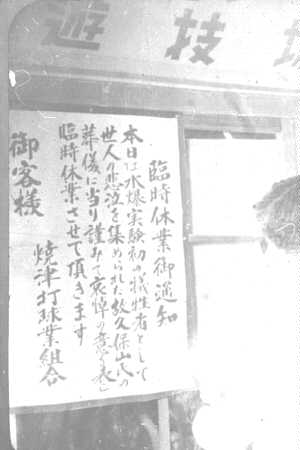 遊技場
臨時休業御通知
本日は水爆実験初の犠牲者として
世人の悲泣を集められた故久保山氏の
葬儀に当り謹みて哀悼の意を表し
臨時休業させて頂きます
焼津打球業組合
御客様